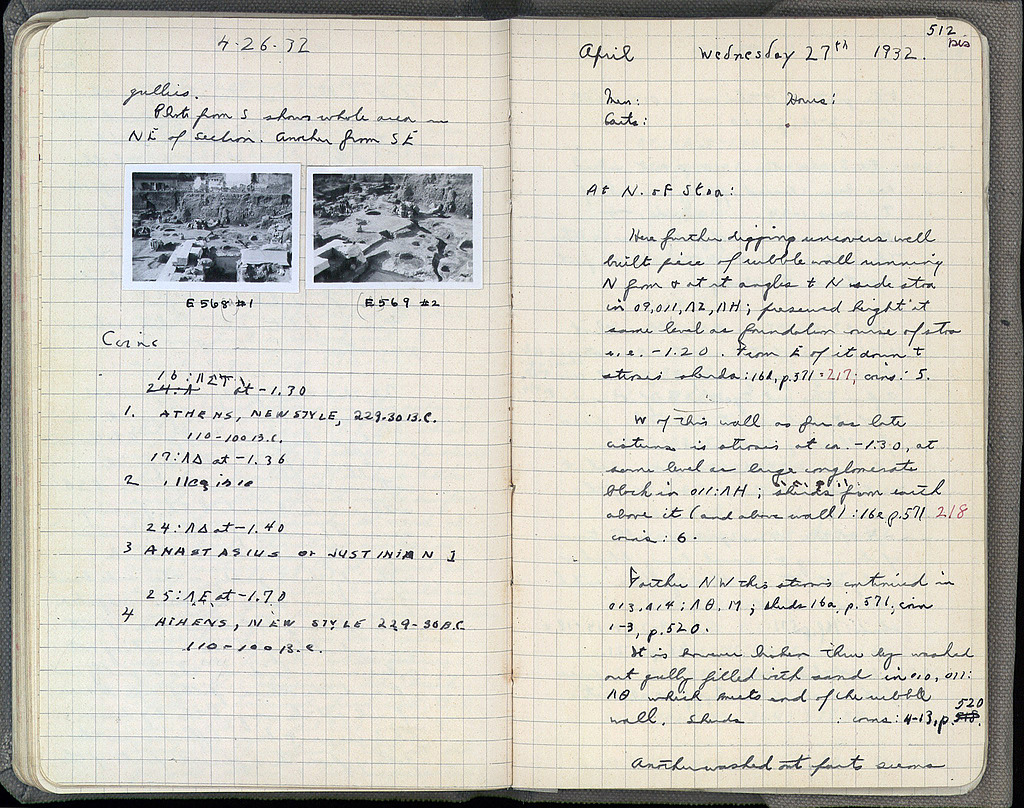 4-26-32
gullies.
Photo from S shows whole area in
NE of section. Another from SE
E568 #1
E569 #2
Coins
16:ΛΣΤ
24:Λ at -1.30
1. ATHENS, NEW STYLE, 229-30 B.C.
110-100 B.C.
17:ΛΔ at -1.36
2 illegible
24:ΛΔ at -1.40
3 ANASTASIUS or JUSTINIAN I
25:ΛΕ at -1.70
4 ATHENS, NEW STYLE 229-30 B.C.
110-100 B.C.
512
bis
April Wednesday 27th 1932.
Men: Hours:
Carts:
At N. of Stoa:
Here further digging uncovers well
built piece of rubble wall running
N from & at rt angles to N side stoa
in 09,011, ΛΖ, ΛΗ; preserved height at
same level as foundation course of stoa
i.e. -1.20. From E of it down to
strosis sherds: 16d, p.571 = 217; coins: 5.
W of this wall as far as late
cisterns is strosis at ca. -1.30, at
same level as large conglomerate
block in 011:ΛΗ; sherds from earth
above it (and above wall): 16e p.571 218
coins: 6.
Farther NW this strosis continued in
013, 014: ΛΘ, ; sherds 16a, p.571, coins
1-3, p.520.
It is however broken thru by washed
out gully filled with sand in 010, 011:
ΛΘ which meets end of the rubble
wall. Sherds : coins: 4-13, p. 518. 520
Another washed out parts seems